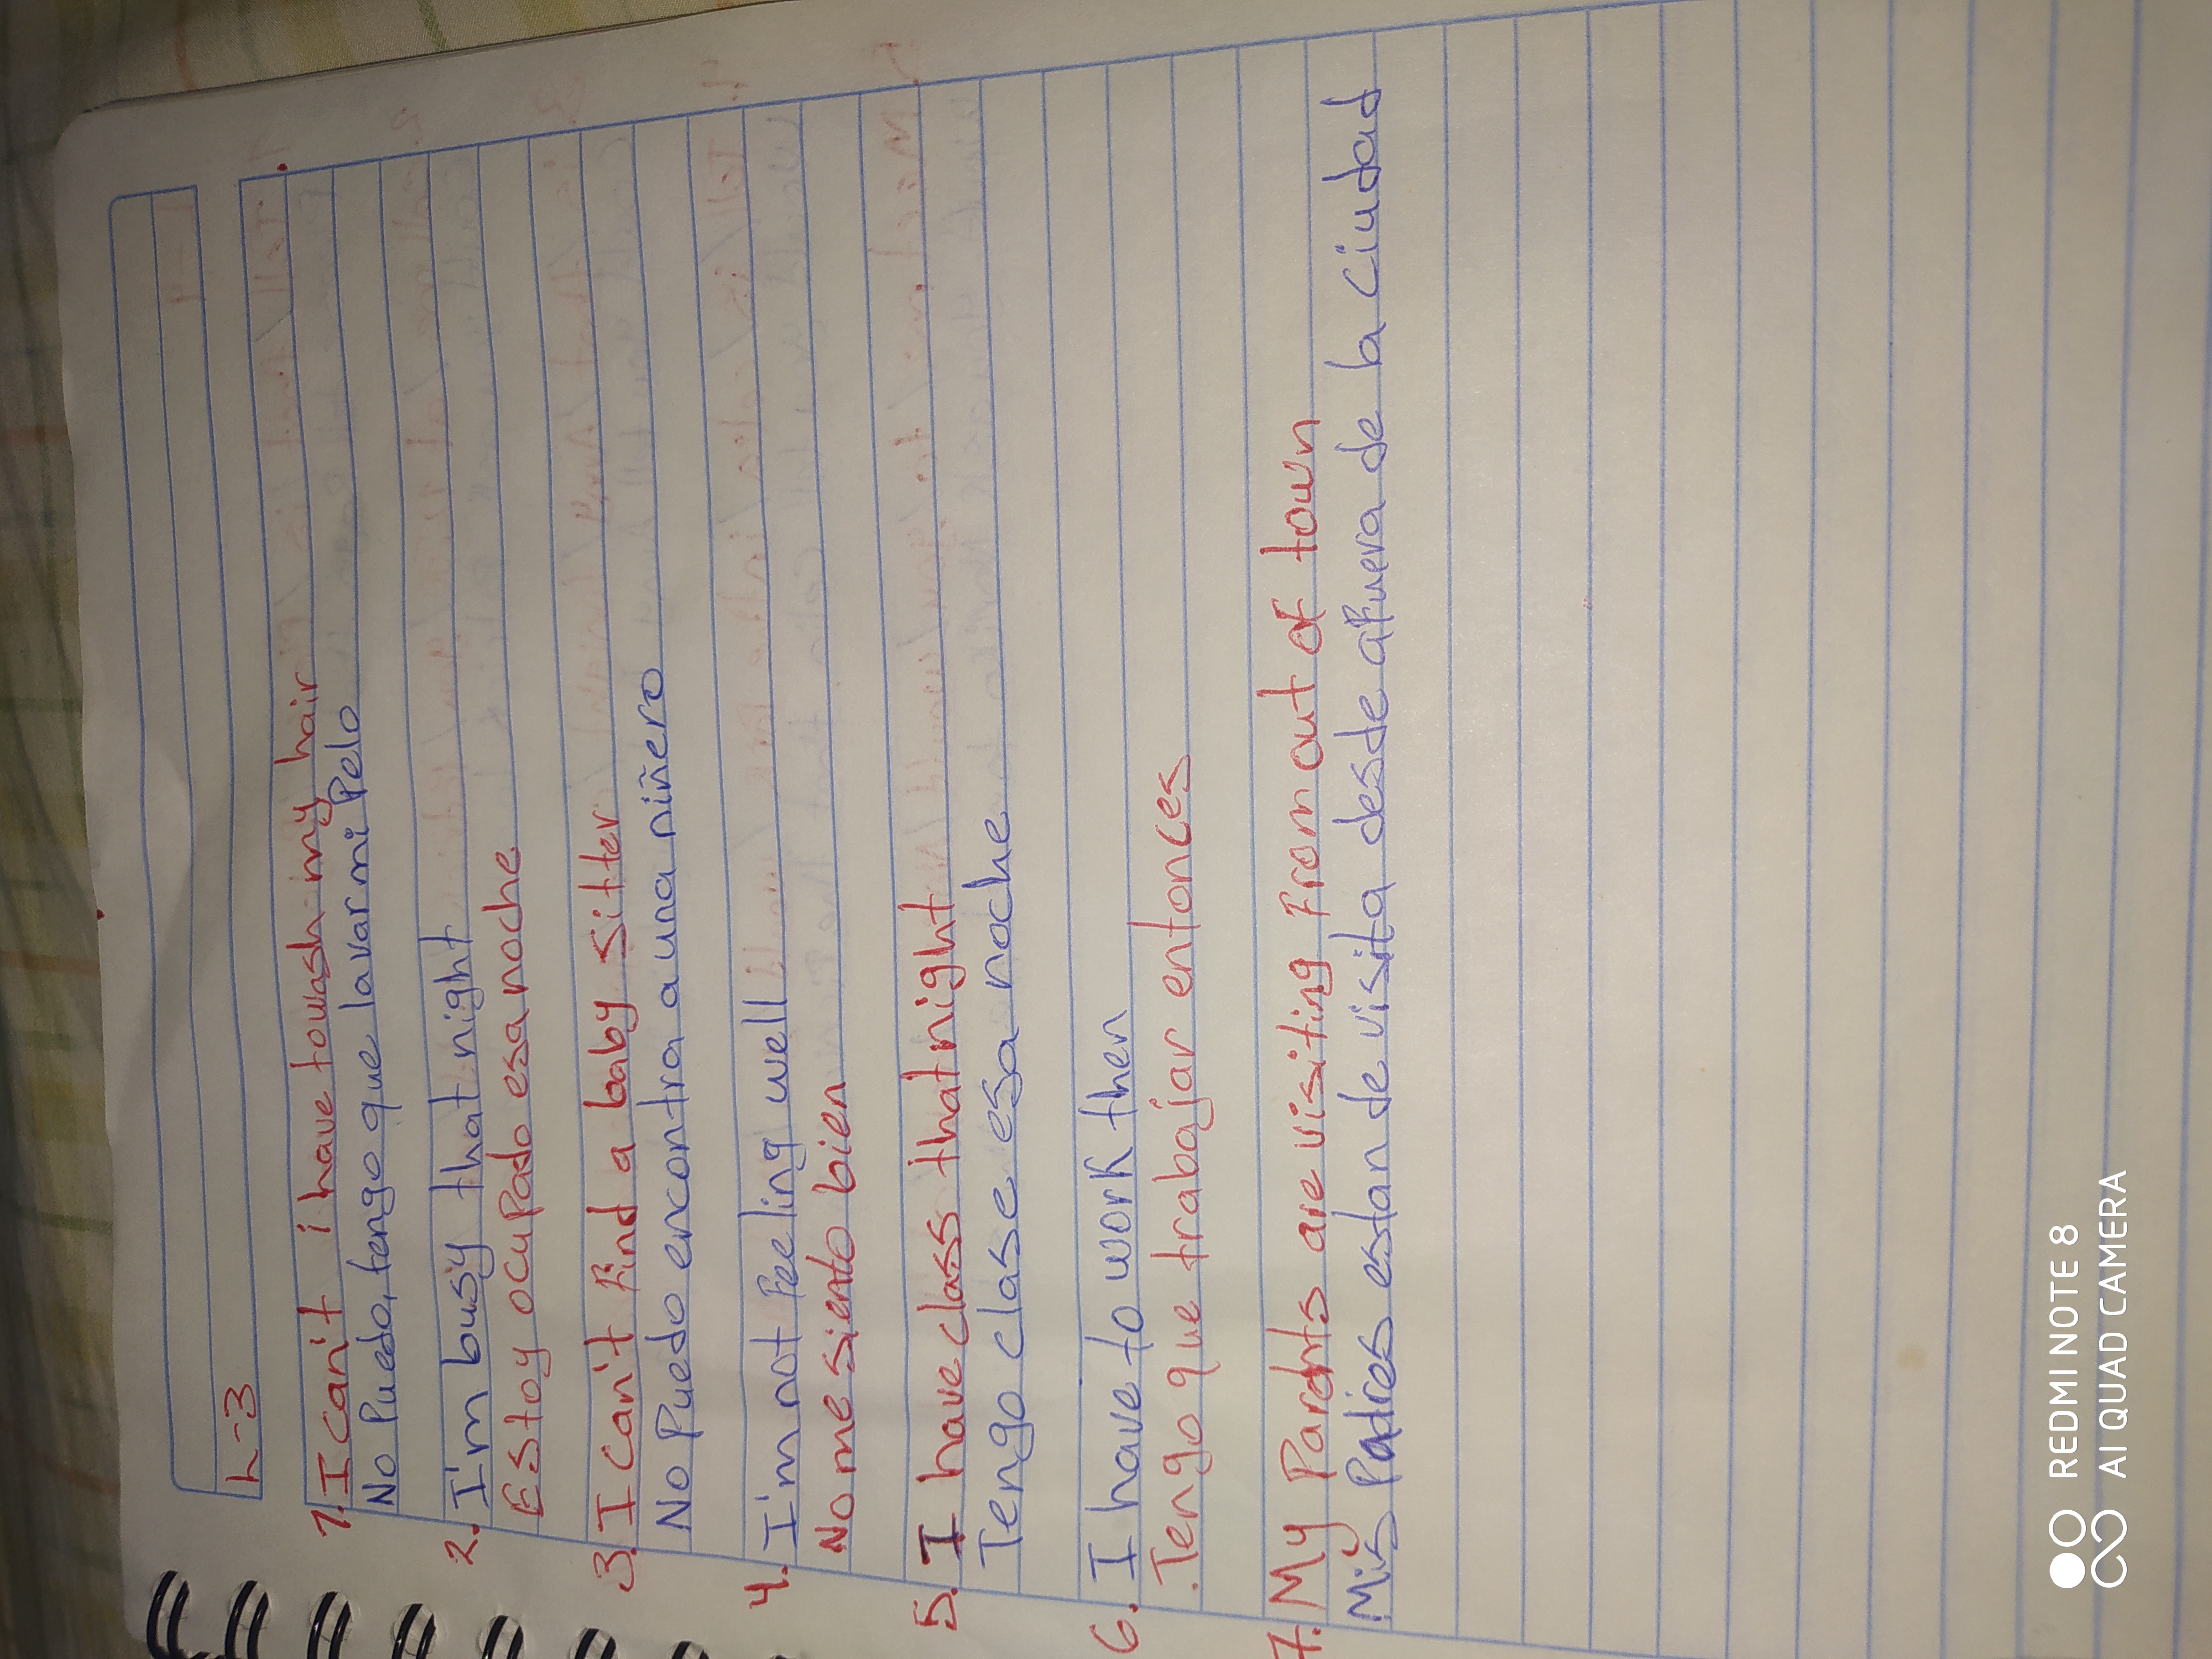 L-3
1. I can't i have towash my hair
No Puedo, tengo que lavar mi Pelo
2. I'm busy that night
Estoy ocuPado esa noche
3. I can't Find a baby sitter
No Puedo encontra a una niñero
4. I'm not Feeling well
No me siento bien
5. I have class that night
Tengo clase esa noche
6. I have to work then
.Tengo que trabajar entonces
7. My Parents are visiting From out of town
Mis Padres estan de visita desde aFuera de la ciudad
REDMI NOTE 8
AI QUAD CAMERA